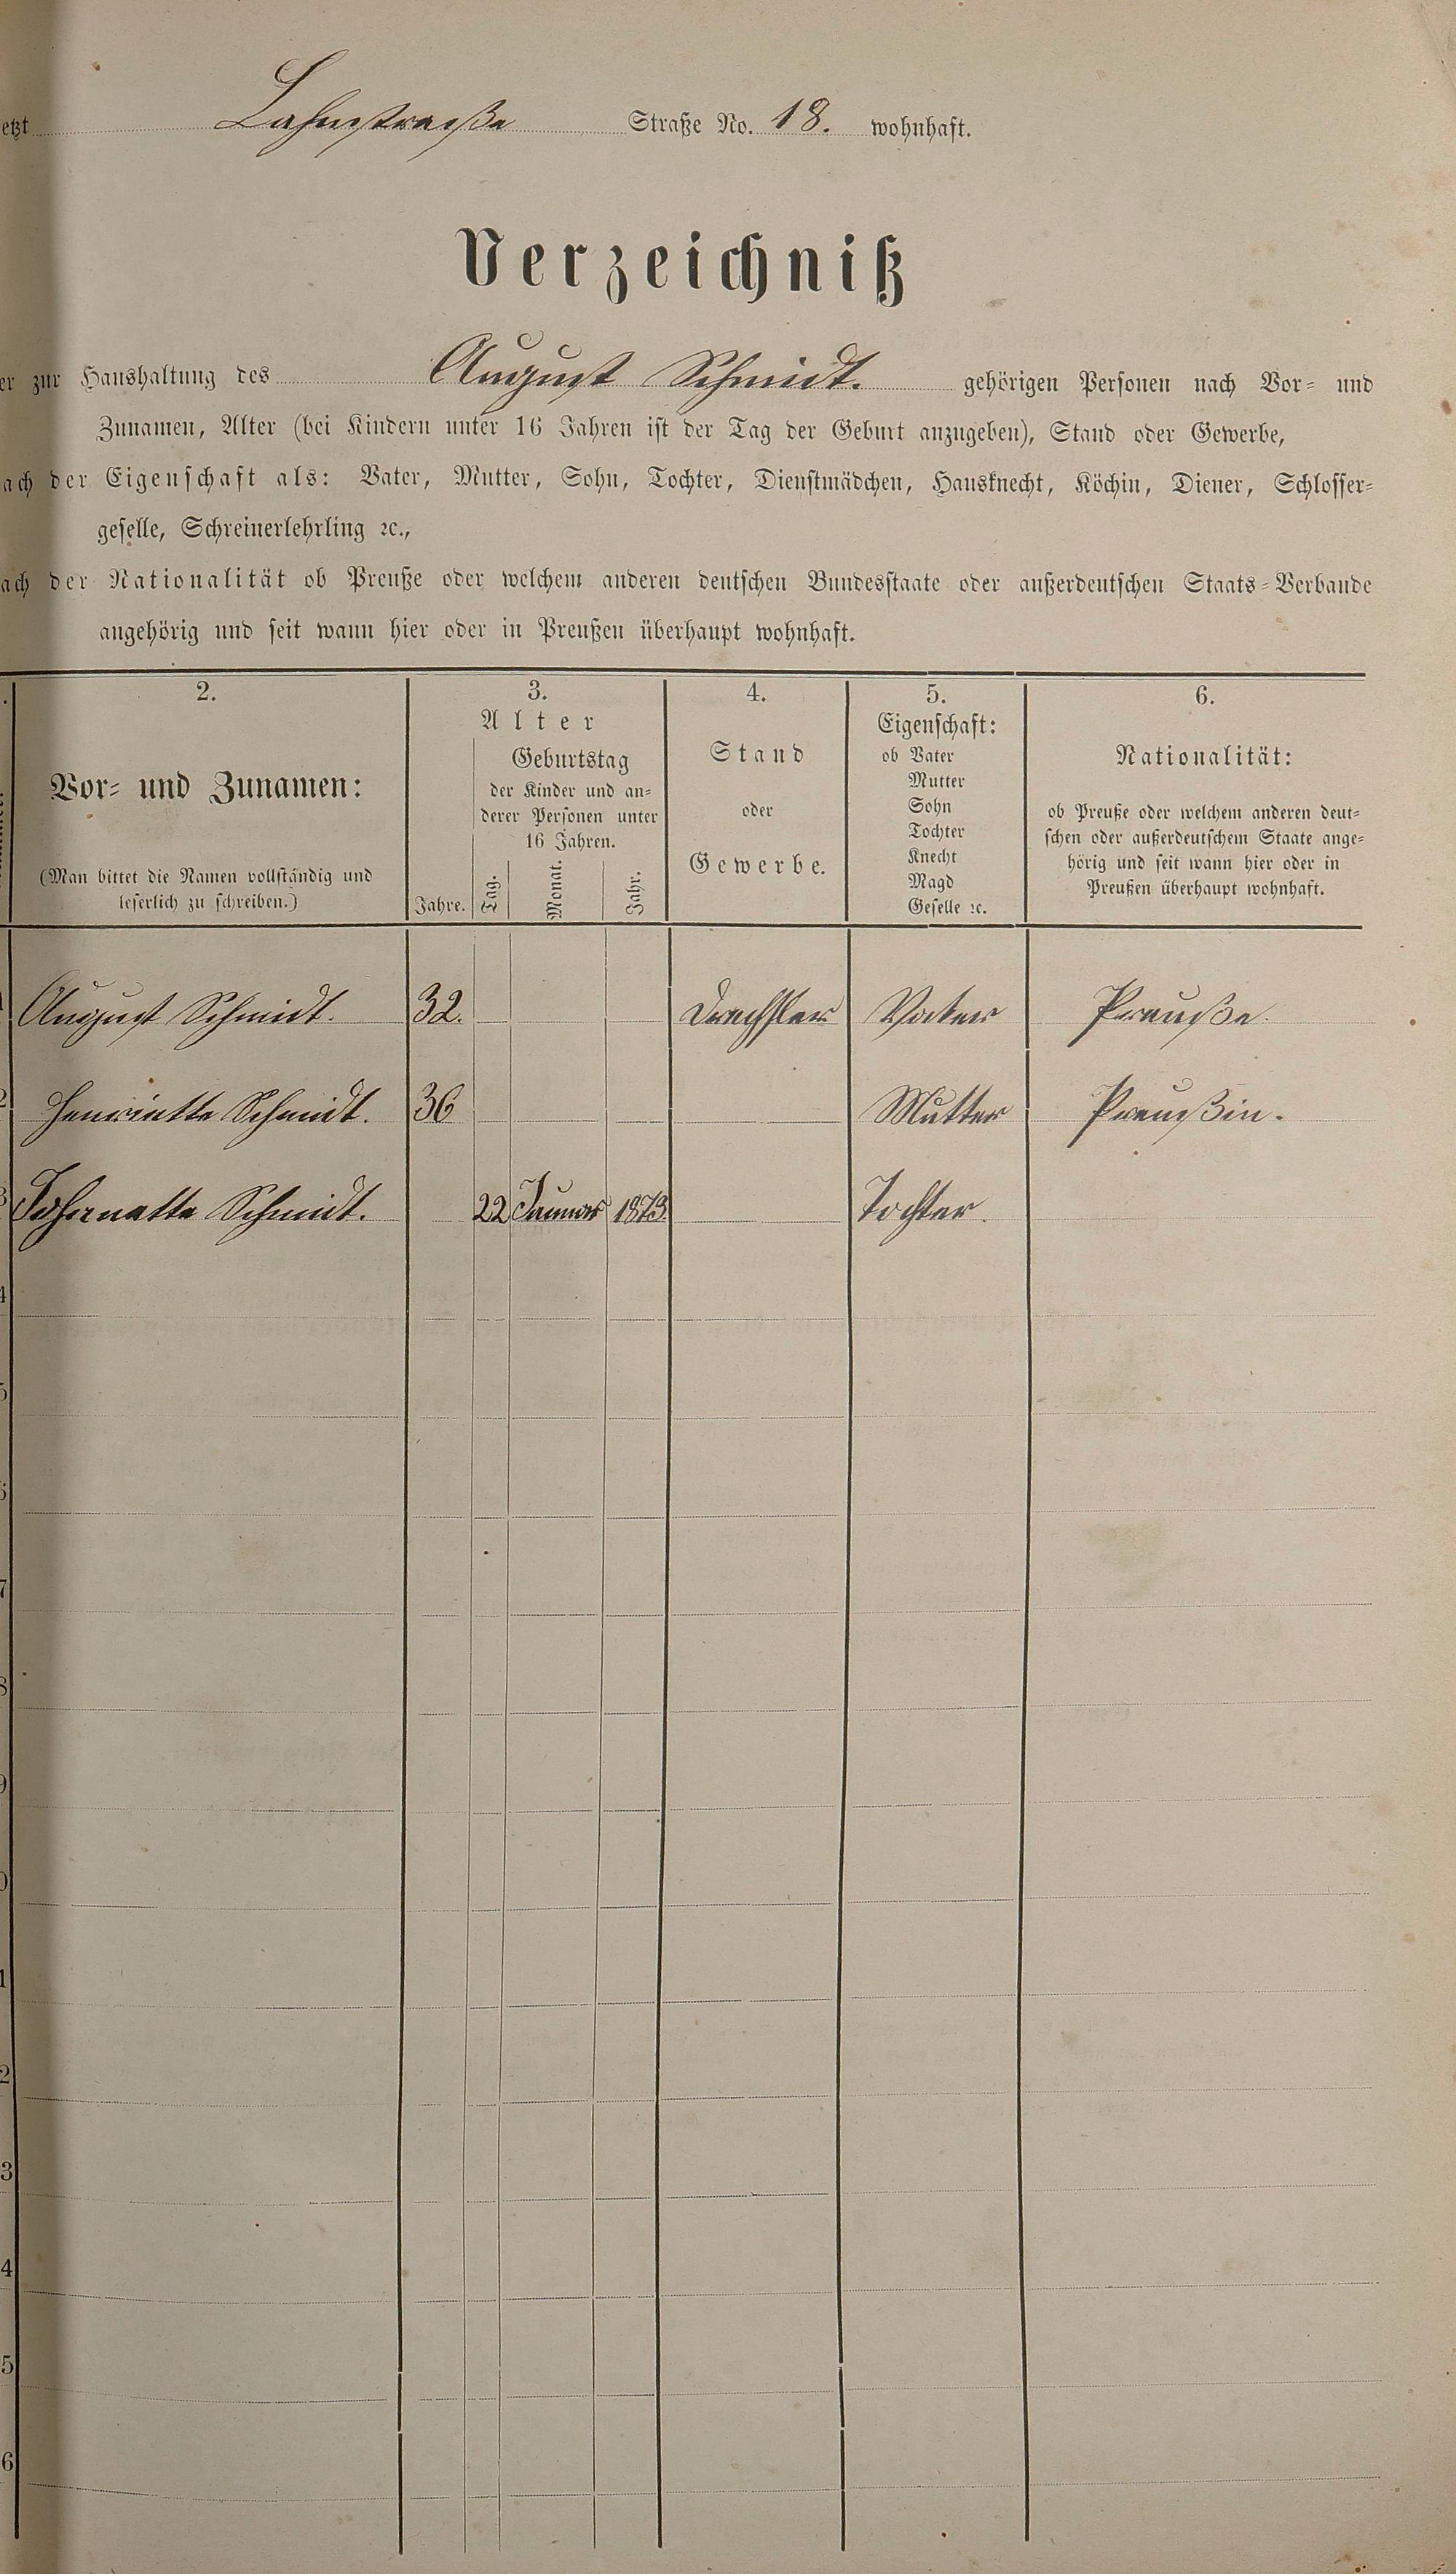 etzt Lahnstraße Straße No. 18. wohnhaft.
Verzeichniß
er zur Haushaltung des August Schmidt. gehörigen Personen nach Vor- und
Zunamen, Alter (bei Kindern unter 16 Jahren ist der Tag der Geburt anzugeben), Stand oder Gewerbe,
ach der Eigenschaft als: Vater, Mutter, Sohn, Tochter, Dienstmädchen, Hausknecht, Köchin, Diener, Schlosser-
geselle, Schreinerlehrling ꝛc.,
ach der Nationalität ob Preuße oder welchem anderen deutschen Bundesstaate oder außerdeutschen Staats-Verbande
angehörig und seit wann hier oder in Preußen überhaupt wohnhaft.
2.
Vor- und Zunamen:
(Man bittet die Namen vollständig und
leserlich zu schreiben.)
3.
Alter
Jahre.
Geburtstag
der Kinder und an-
derer Personen unter
16 Jahren.
Tag.
Monat.
Jahr.
4.
Stand
oder
Gewerbe.
5.
Eigenschaft:
ob Vater
Mutter
Sohn
Tochter
Knecht
Magd
Geselle ꝛc.
6.
Nationalität:
ob Preuße oder welchem anderen deut-
schen oder außerdeutschem Staate ange-
hörig und seit wann hier oder in
Preußen überhaupt wohnhaft.
August Schmidt. 32. Drechsler Vater Preuße.
2 Henriette Schmidt. 36 Mutter Preußin.
3 Johanette Schmidt. 22 Januar 1873. Tochter.
4
5
6
7
8
9
0
1
2
3
4
5
6